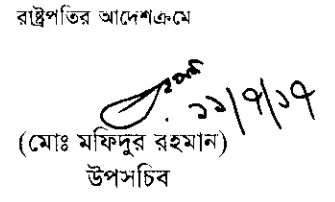 রাষ্ট্রপতির আদেশক্রমে
১১/৭/১৭
(মোঃ মফিদুর রহমান)
উপসচিব